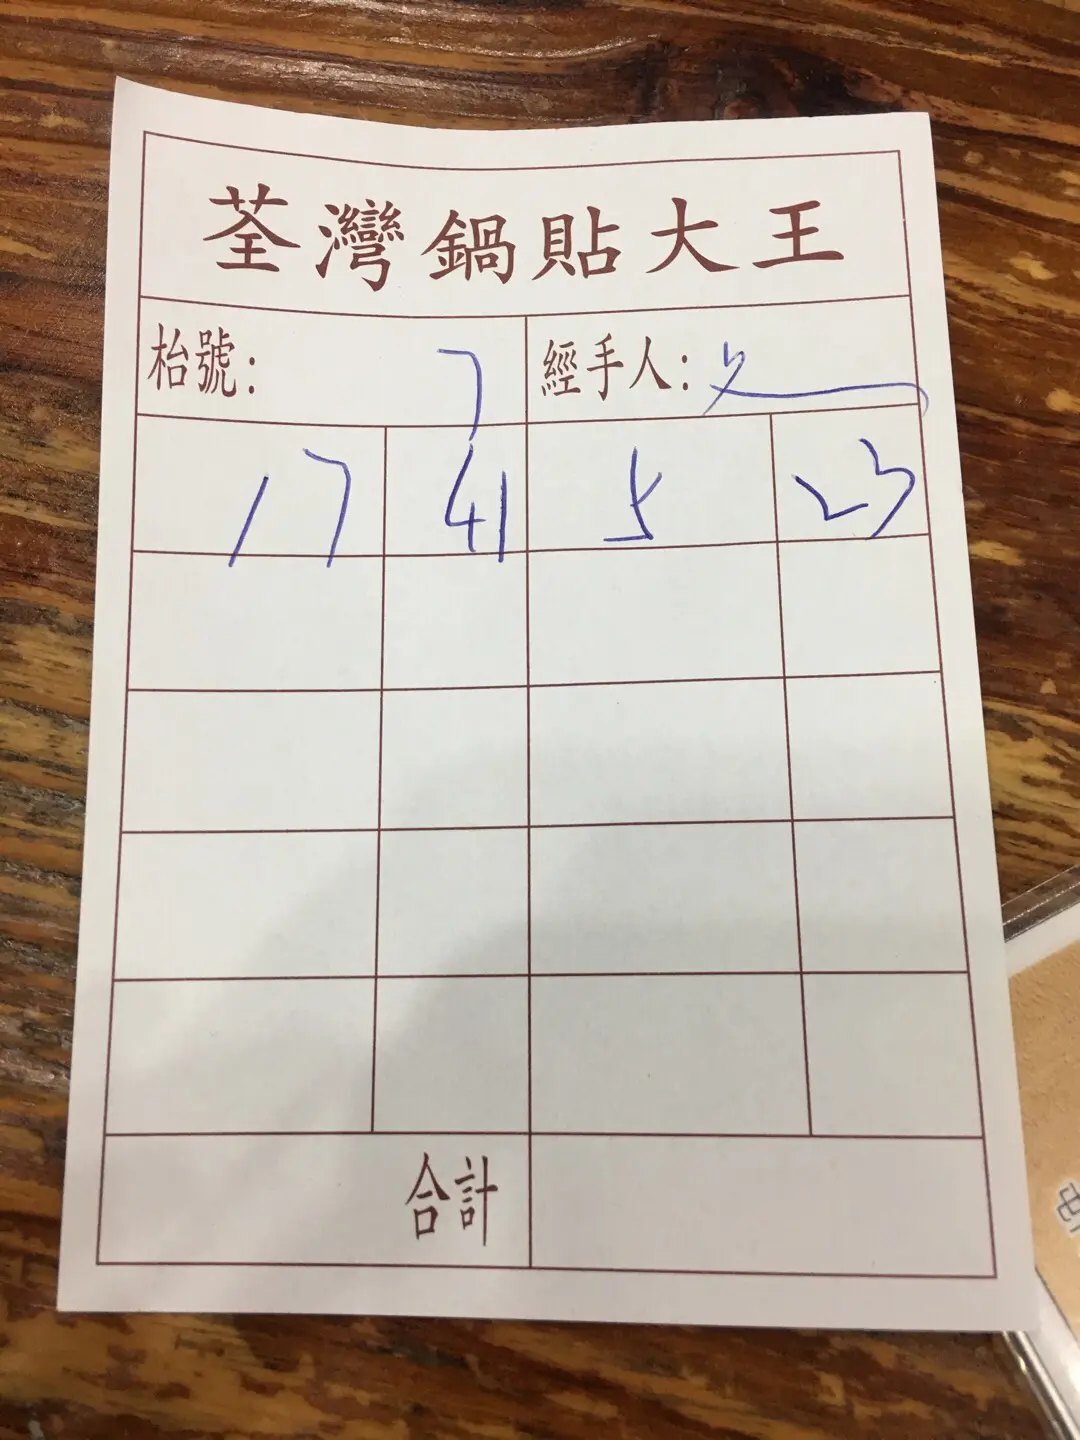 荃灣鍋貼大王
枱號: 7 經手人:
17 41 5 23
合計